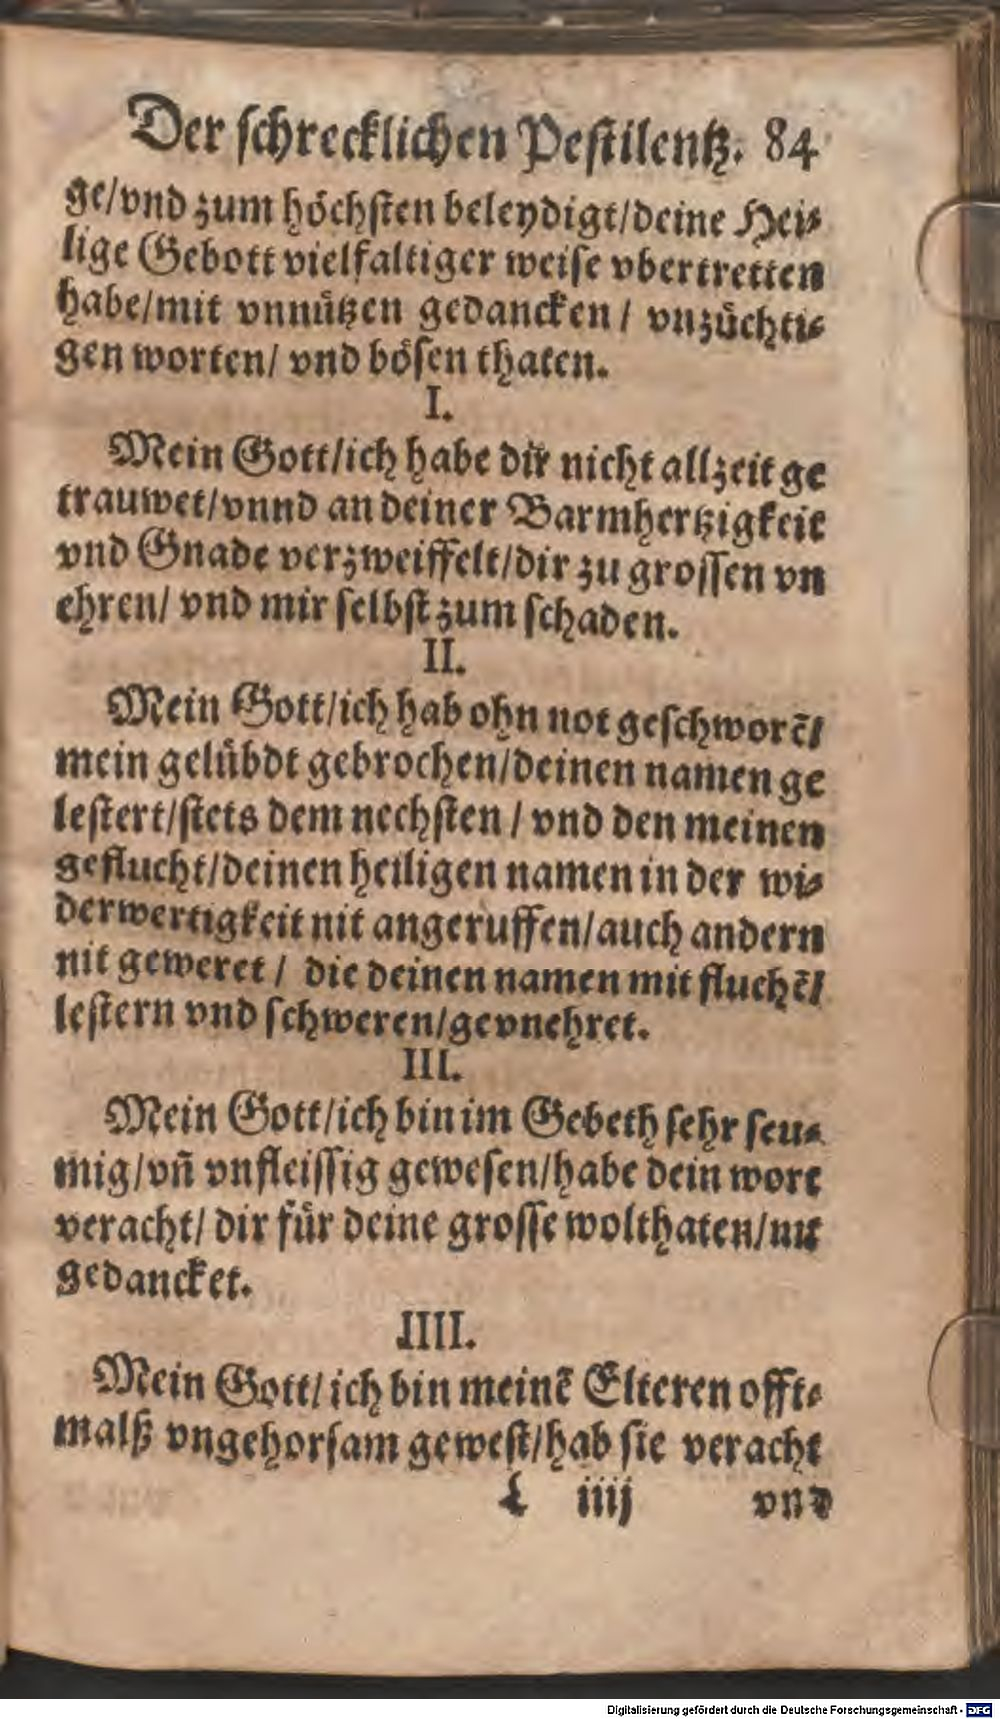 Der ſchrecklichen Peſtilentz. 84
ge/vnd zum höchſten beleydigt/deine Hei⸗
lige Gebott vielfaltiger weiſe vbertretten
habe/mit vnnuͤtzen gedancken / vnzuͤchti⸗
gen worten/ vnd boͤſen thaten.
I.
Mein Gott/ich habe dir nicht allzeit ge
trauwet/vnnd an deiner Barmhertzigkeit
vnd Gnade verzweiffelt/dir zu groſſen vn
ehren/ vnd mir ſelbſt zum ſchaden.
II.
Mein Gott/ich hab ohn not geſchworẽ/
mein geluͤbdt gebrochen/deinen namen ge
leſtert/ſtets dem nechſten / vnd den meinen
geflucht/deinen heiligen namen in der wi⸗
derwertigkeit nit angeruffen/auch andern
nit geweret / die deinen namen mit fluchẽ/
leſtern vnd ſchweren/gevnehret.
III.
Mein Gott/ich bin im Gebeth ſehr ſeu⸗
mig/vñ vnfleiſſig geweſen/habe dein wort
veracht/ dir fuͤr deine groſſe wolthaten/nit
gedancket.
IIII.
Mein Gott/ ich bin meinẽ Elteren offt⸗
malß vngehorſam geweſt/hab ſie veracht
L iiij vnd
Digitalisierung gefördert durch die Deutsche Forschungsgemeinschaft - DFG